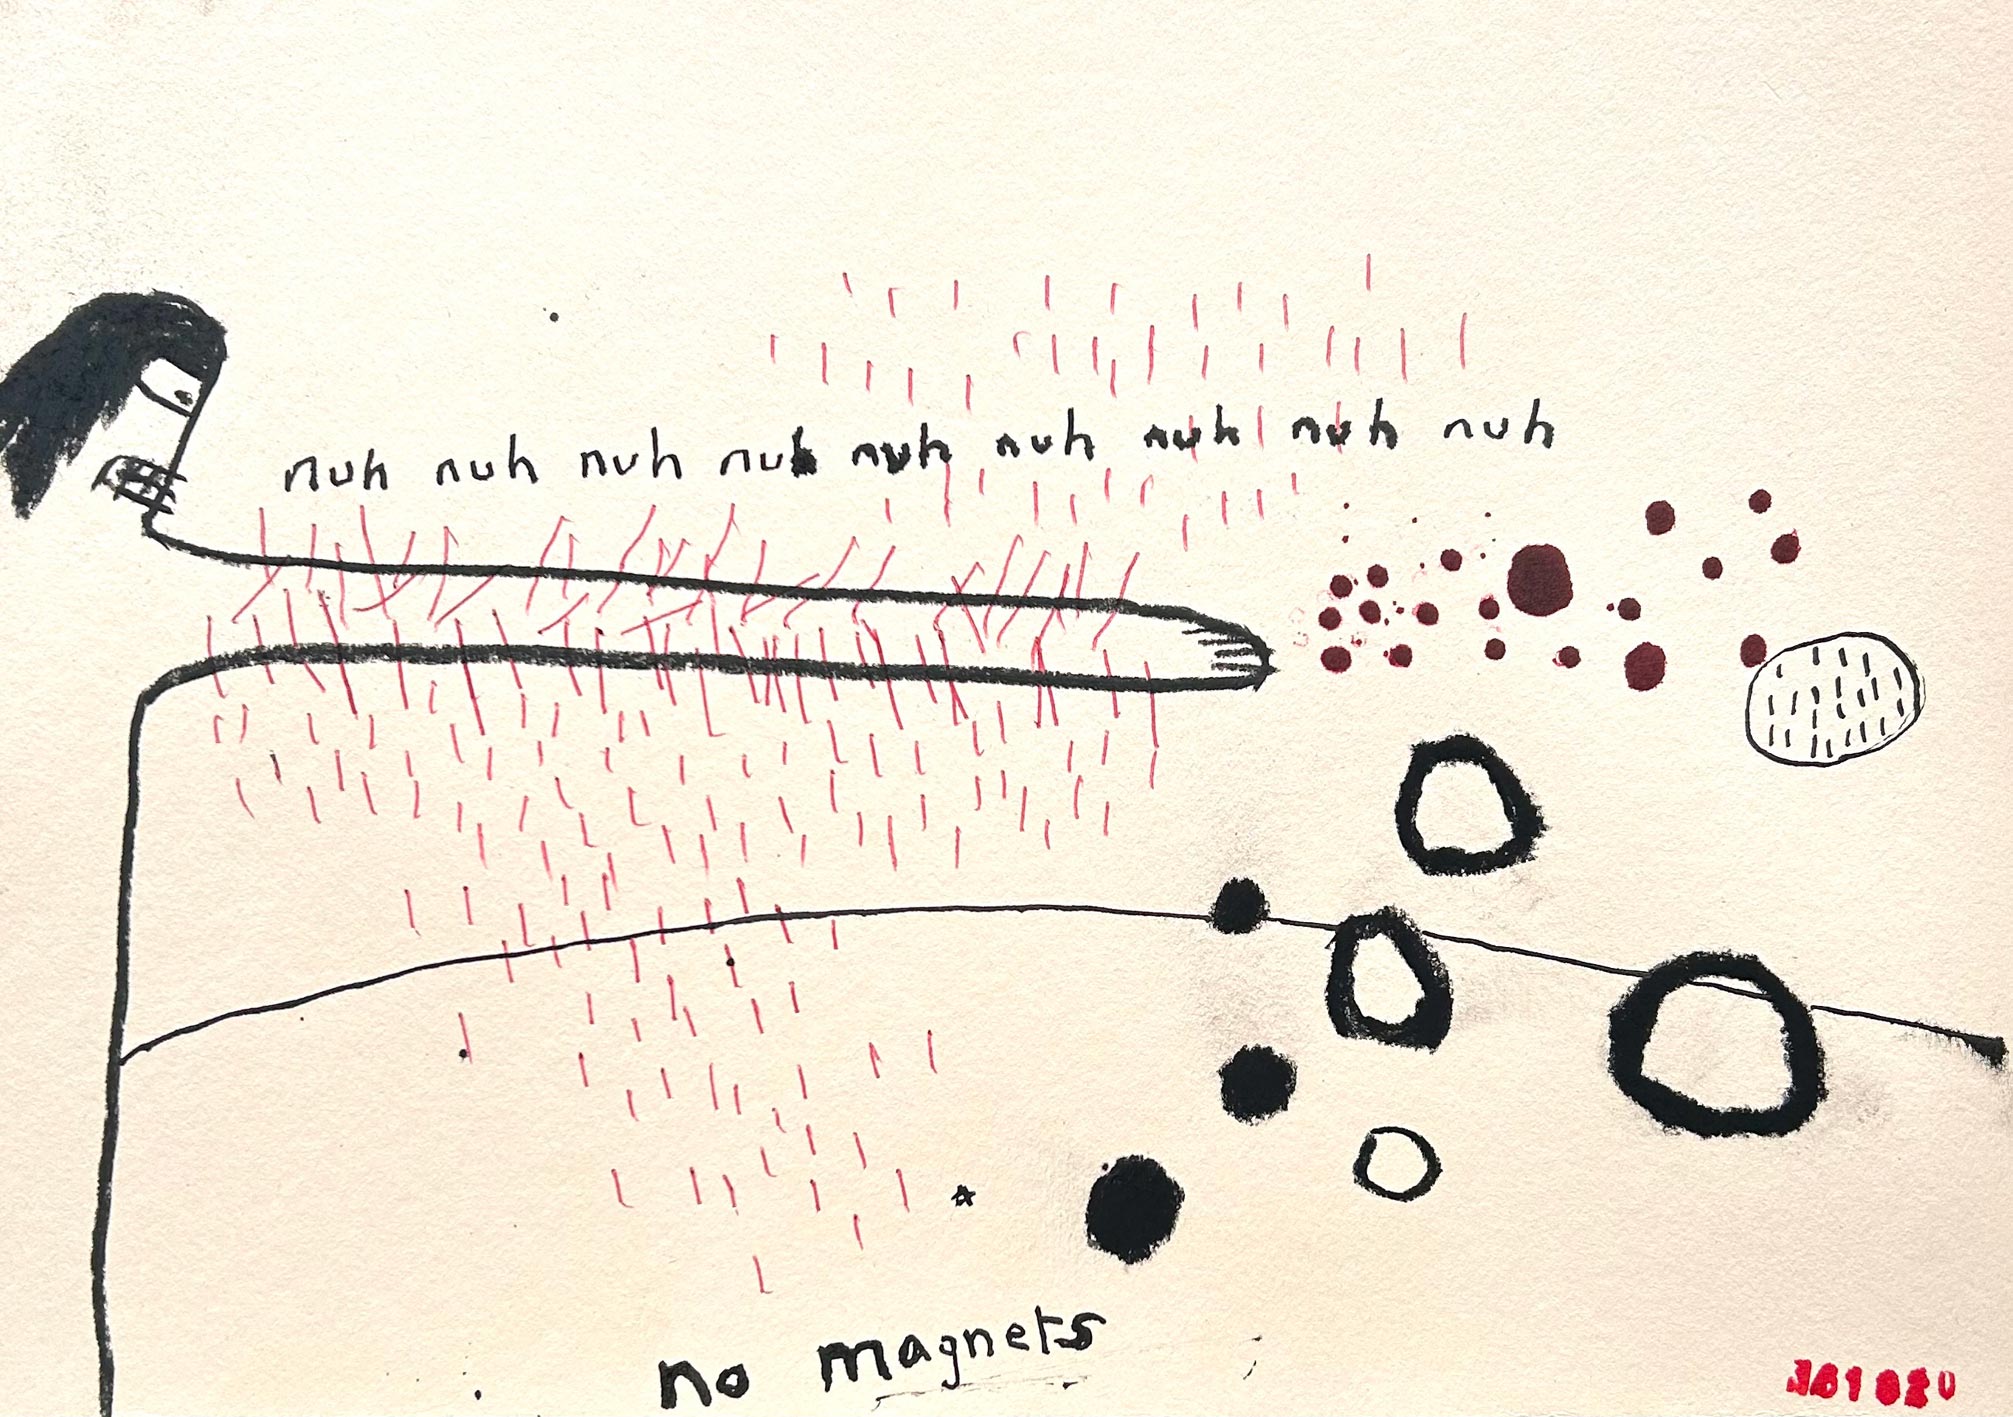 nuh nuh nuh nuh nuh nuh nuh nuh nuh
no magnets